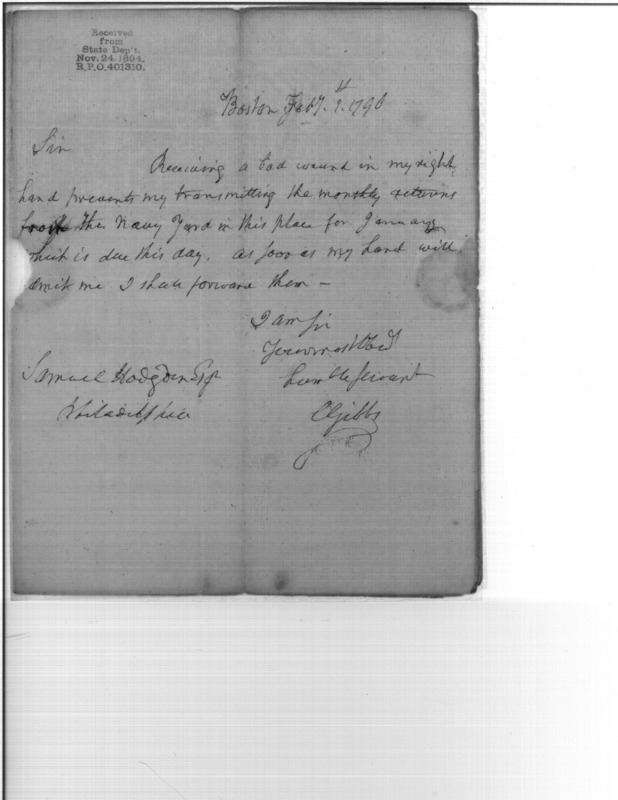 Received
from
State Dep't.
Nov. 24, 1894.
R.P.O. 401310.
Boston Feby. 1. 1796
Sir
Receiving a bad wound in my right
hand prevents my transmitting the monthly returns
from the Navy Yard in this place for January
which is due this day. as soon as my hand will
admit me I shall forward them —
I am Sir
Your most Obed
humble Servant
Samuel Hodgdon Esqr
Philadelphia
C Gibbs